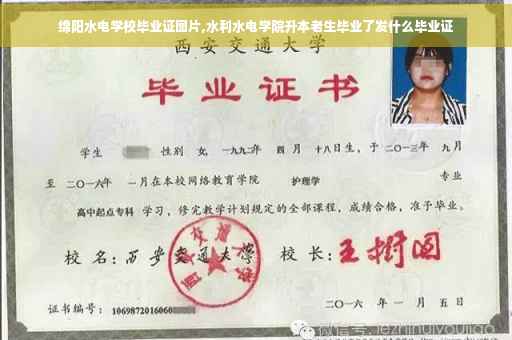 绵阳水电学校毕业证图片,水利水电学院升本老生毕业了发什么毕业证
西安交通大学
毕业证书
学生 性别 女, 一九九二年 四月 十八日生, 于 二〇一三年 九月
至 二〇一六年 一月在本校网络教育学院 护理学 专业
高中起点专科 学习, 修完教学计划规定的全部课程, 成绩合格, 准予毕业。
校名: 西安交通大学 校长: 王树国
西安交通大学
证书编号: 1069872016060
二〇一六年 一月 五日
微信号: jezhinuiyoujiao